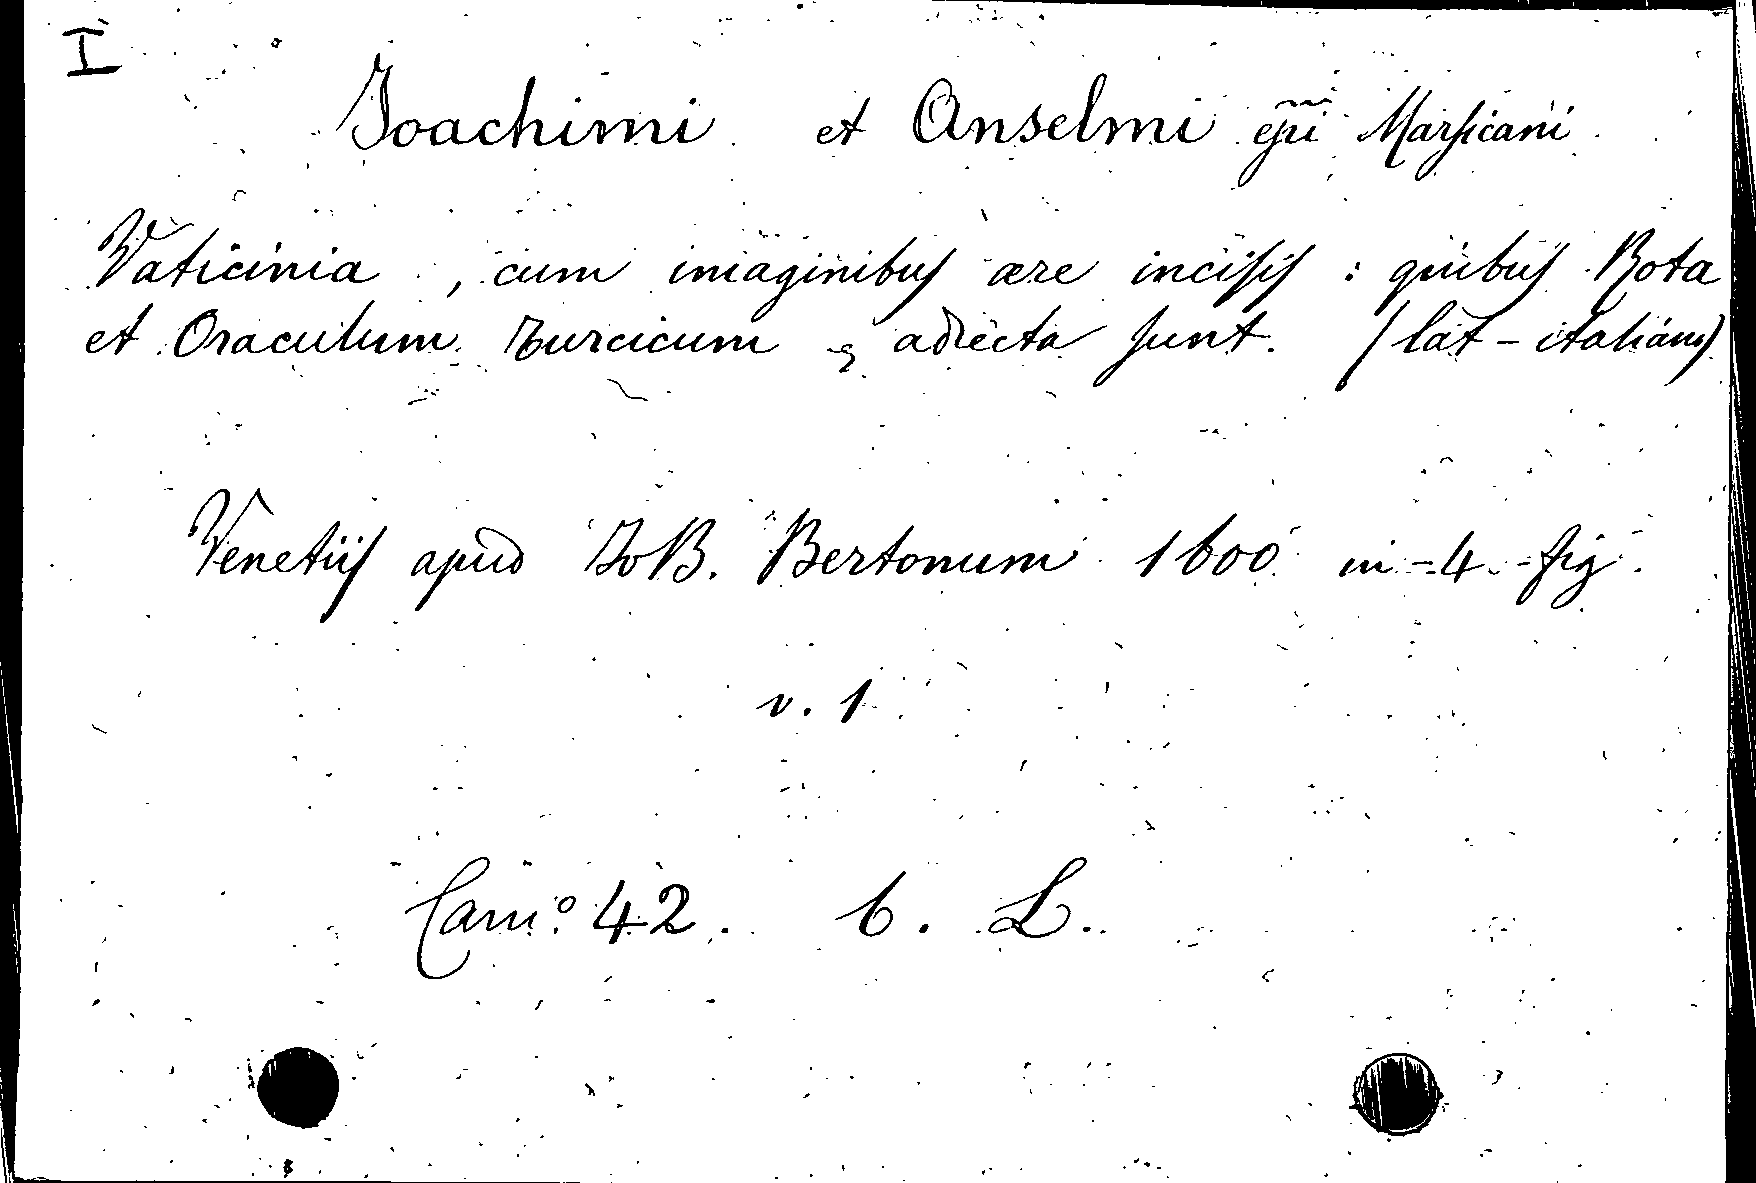 I
Joachimi et Anselmi epi Marsicani
Vaticinia, cum imaginibus ære incisis : quibus Rota
et Oraculum Turcicum adiecta sunt. (lat-italiano)
Venetiis apud Io B. Bertonum 1600 in-4-fig.
v. 1
Cam.º 42. 6. L.